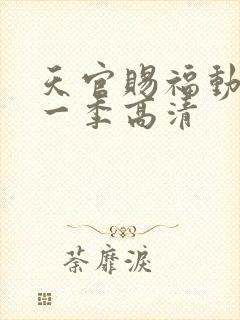 天官赐福动
一季高清
荼靡泪